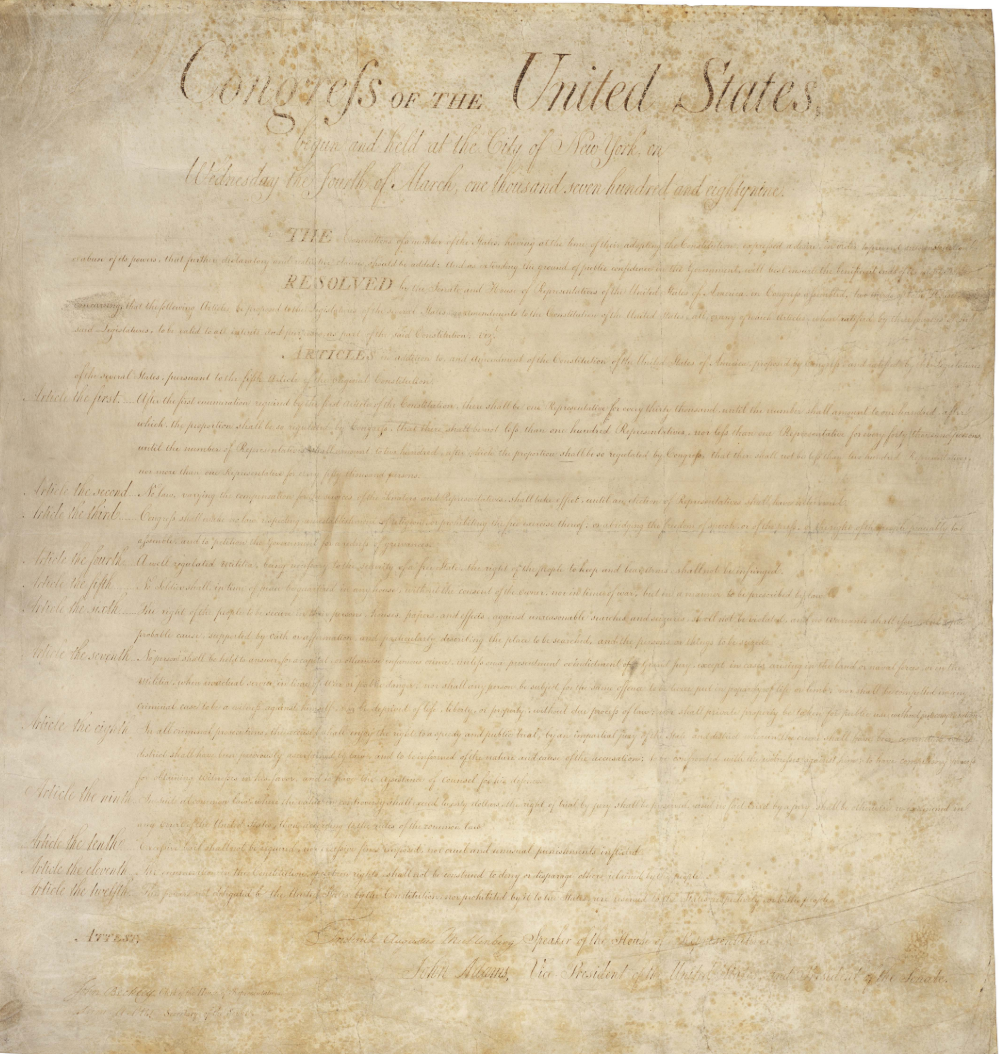 Congreſs OF THE United States,
begun and held at the City of New York, on
Wednesday the fourth of March, one thousand seven hundred and eighty nine.
THE Conventions of a number of the States, having at the time of their adopting the Constitution, expressed a desire, in order to prevent
abuse of its powers, that further declaratory and restrictive clauses should be added: And as extending the ground of public confidence in the Government, will best ensure the beneficent ends of
RESOLVED by the Senate and House of Representatives of the United States of America, in Congreſs aſsembled, two thirds of
concurring, that the following Articles be proposed to the Legislatures of the several States, as amendments to the Constitution of the United States, all, or any of which Articles, when ratified by three fourths of
said Legislatures, to be valid to all intents and purposes, as part of the said Constitution; viz.
ARTICLES in addition to, and Amendment of the Constitution of the United States of America, proposed by Congreſs, and ratified by the Legislatures
of the several States, pursuant to the fifth Article of the original Constitution.
Article the first. After the first enumeration required by the first Article of the Constitution, there shall be one Representative for every thirty thousand, until the number shall amount to one hundred, after
which, the proportion shall be so regulated by Congreſs, that there shall be not leſs than one hundred Representatives, nor leſs than one Representative for every forty thousand persons,
until the number of Representatives shall amount to two hundred, after which the proportion shall be so regulated by Congreſs, that there shall not be leſs than two hundred Representatives,
nor more than one Representative for every fifty thousand persons.
Article the second. No law, varying the compensation for the services of the Senators and Representatives, shall take effect, until an election of Representatives shall have intervened.
Article the third. Congreſs shall make no law respecting an establishment of religion, or prohibiting the free exercise thereof; or abridging the freedom of speech, or of the preſs; or the right of the people peaceably to
aſsemble, and to petition the Government for a redreſs of grievances.
Article the fourth. A well regulated Militia, being neceſsary to the security of a free State, the right of the people to keep and bear Arms, shall not be infringed.
Article the fifth. No Soldier shall, in time of peace be quartered in any house, without the consent of the owner, nor in time of war, but in a manner to be prescribed by law.
Article the sixth. The right of the people to be secure in their persons, houses, papers, and effects, against unreasonable searches and seizures, shall not be violated, and no warrants shall iſsue, but upon
probable cause, supported by oath or affirmation, and particularly describing the place to be searched, and the persons or things to be seized.
Article the seventh. No person shall be held to answer for a capital, or otherwise infamous crime, unleſs on a presentment or indictment of a Grand Jury, except in cases arising in the land or naval forces, or in the
Militia, when in actual service in time of War or public danger; nor shall any person be subject for the same offence to be twice put in jeopardy of life or limb; nor shall be compelled in any
criminal case to be a witneſs against himself, nor be deprived of life, liberty, or property, without due proceſs of law; nor shall private property be taken for public use, without just compensation.
Article the eighth. In all criminal prosecutions, the accused shall enjoy the right to a speedy and public trial, by an impartial jury of the State and district wherein the crime shall have been committed, which
district shall have been previously ascertained by law, and to be informed of the nature and cause of the accusation; to be confronted with the witneſses against him; to have compulsory proceſs
for obtaining witneſses in his favor, and to have the aſsistance of counsel for his defence.
Article the ninth. In suits at common law, where the value in controversy shall exceed twenty dollars, the right of trial by jury shall be preserved, and no fact tried by a jury, shall be otherwise re-examined in
any Court of the United States, than according to the rules of the common law.
Article the tenth. Exceſsive bail shall not be required, nor exceſsive fines imposed, nor cruel and unusual punishments inflicted.
Article the eleventh. The enumeration in the Constitution, of certain rights, shall not be construed to deny or disparage others retained by the people.
Article the twelfth. The powers not delegated to the United States by the Constitution, nor prohibited by it to the States, are reserved to the States respectively, or to the people.
ATTEST,
Frederick Augustus Muhlenberg Speaker of the House of Representatives.
John Adams, Vice President of the United States, and President of the Senate.
John Beckley,
Secretary of the Senate